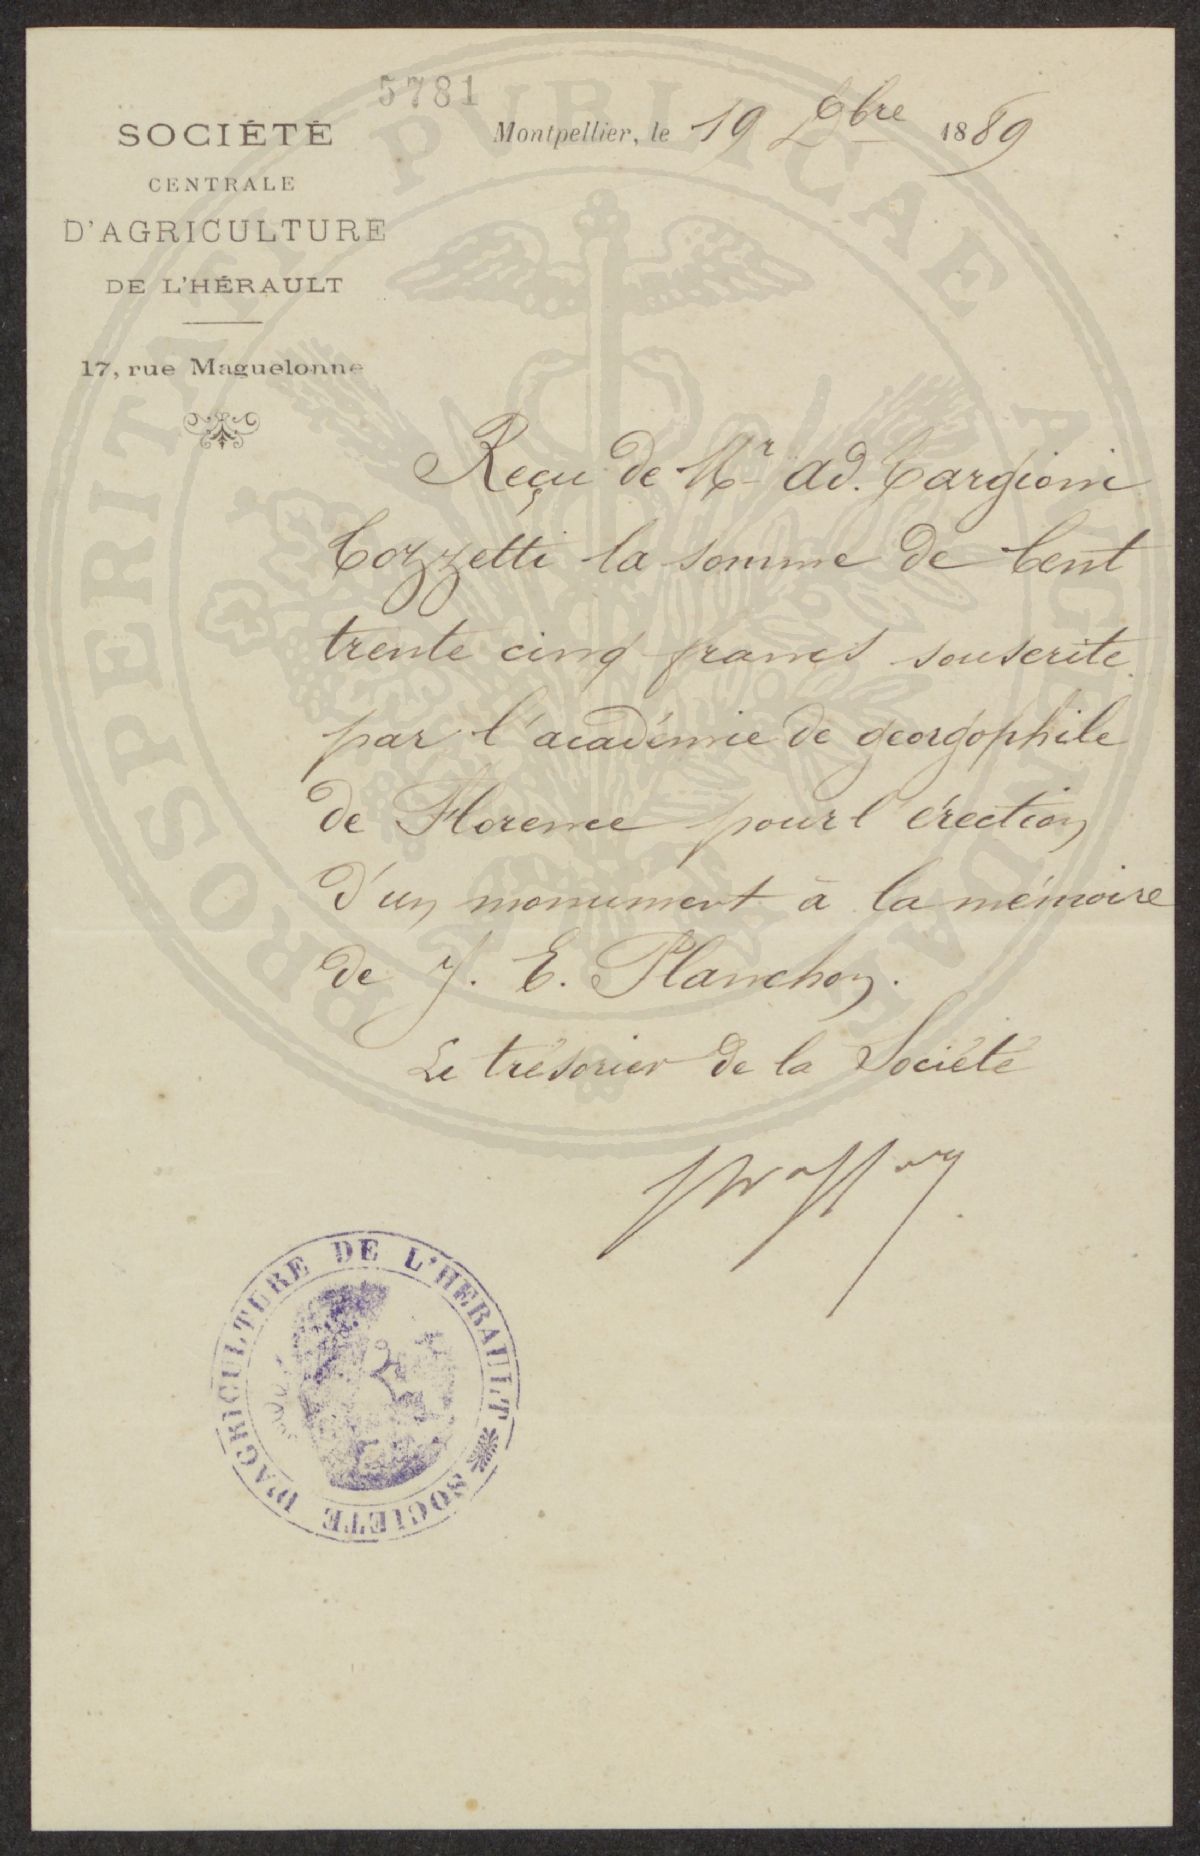 5781
SOCIÉTÉ
CENTRALE
D'AGRICULTURE
DE L'HÉRAULT
17, rue Maguelonne
Montpellier, le 19 Xbre 1889
Reçu de Mr Ad. Targioni
Tozzetti la somme de Cent
trente cinq francs souscrite
par l'académie de georgophile
de Florence pour l'érection
d'un monument à la mémoire
de J. E. Planchon.
Le trésorier de la Société
SOCIETE D'AGRICULTURE DE L'HERAULT
PROSPERITATI PVBLICAE AVGENDAE